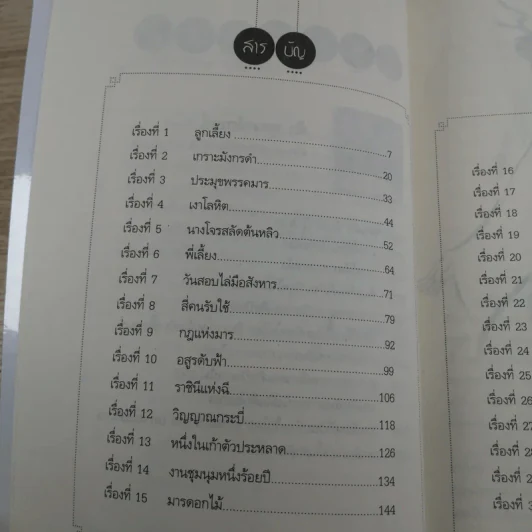 สารบัญ
เรื่องที่ 1 ลูกเลี้ยง 7
เรื่องที่ 2 เกราะมังกรดำ 20
เรื่องที่ 3 ประมุขพรรคมาร 33
เรื่องที่ 4 เงาโลหิต 44
เรื่องที่ 5 นางโจรสลัดต้นหลิว 52
เรื่องที่ 6 พี่เลี้ยง 64
เรื่องที่ 7 วันสอบไล่มือสังหาร 71
เรื่องที่ 8 สี่คนรับใช้ 79
เรื่องที่ 9 กฎแห่งมาร 92
เรื่องที่ 10 อสูรดับฟ้า 99
เรื่องที่ 11 ราชินีแห่งฉี 106
เรื่องที่ 12 วิญญาณกระบี่ 118
เรื่องที่ 13 หนึ่งในเก้าตัวประหลาด 126
เรื่องที่ 14 งานชุมนุมหนึ่งร้อยปี 134
เรื่องที่ 15 มารดอกไม้ 144
เรื่องที่ 16
เรื่องที่ 17
เรื่องที่ 18
เรื่องที่ 19
เรื่องที่ 20
เรื่องที่ 21
เรื่องที่ 22
เรื่องที่ 23
เรื่องที่ 24
เรื่องที่ 25
เรื่องที่ 26
เรื่องที่
เรื่องที่
เรื่องที่
เรื่องที่